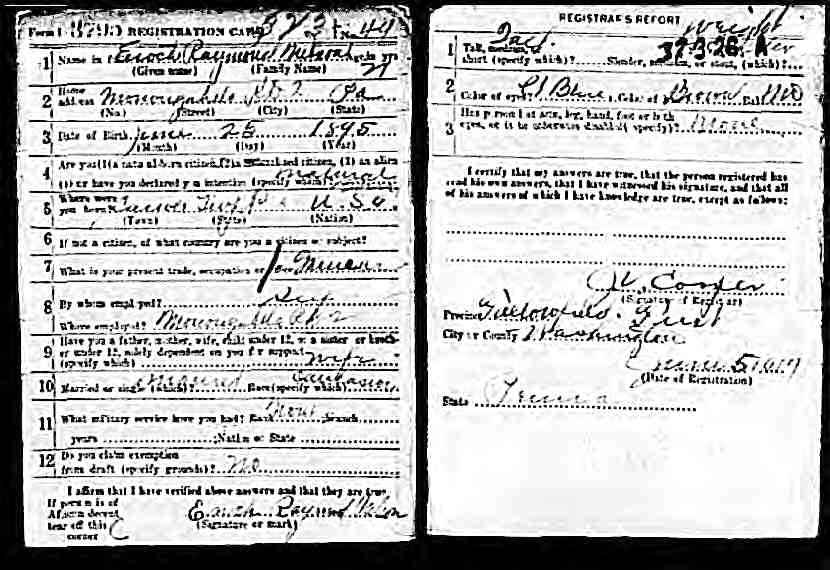 Form 1 REGISTRATION CARD 373 No. 44
1 Name in full Enoch Raymond Age, in yrs
(Given name) (Family Name) 21
2 Home address Monongahela RD 2 Pa
(No.) (Street) (City) (State)
3 Date of Birth June 25 1895
(Month) (Day) (Year)
4 Are you (1) a natural-born citizen, (2) a naturalized citizen, (3) an alien
(4) or have you declared your intention (specify which)? natural
5 Where were you born? Pa U.S.a.
(Town) (State) (Nation)
6 If not a citizen, of what country are you a citizen or subject?
7 What is your present trade, occupation or Miner
8 By whom employed?
Where employed? Monongahela Rd 2
9 Have you a father, mother, wife, child under 12, or a sister or brother
under 12, solely dependent on you for support
(specify which) wife
10 Married or single (which)? Married Race (specify which)? Caucasian
11 What military service have you had? Rank None branch
years Nation or State
12 Do you claim exemption
from draft (specify grounds)? No
I affirm that I have verified above answers and that they are true.
If person is of
African descent
tear off this
corner
Enoch Raymond
(Signature or mark)
REGISTRAR'S REPORT
37-3-26. A
1 Tall, medium, or
short (specify which)? Tall Slender, medium, or stout, (which)?
2 Color of eyes? Lt Blue Color of Brown No
3 Has person lost arm, leg, hand, foot or both
eyes, or is he otherwise disabled (specify)? None
I certify that my answers are true, that the person registered has
read his own answers, that I have witnessed his signature, and that all
of his answers of which I have knowledge are true, except as follows:
Cooper
(Signature of Registrar)
Precinct Fallowfield First
City or County Washington
June 5 1917
(Date of Registration)
State Penna